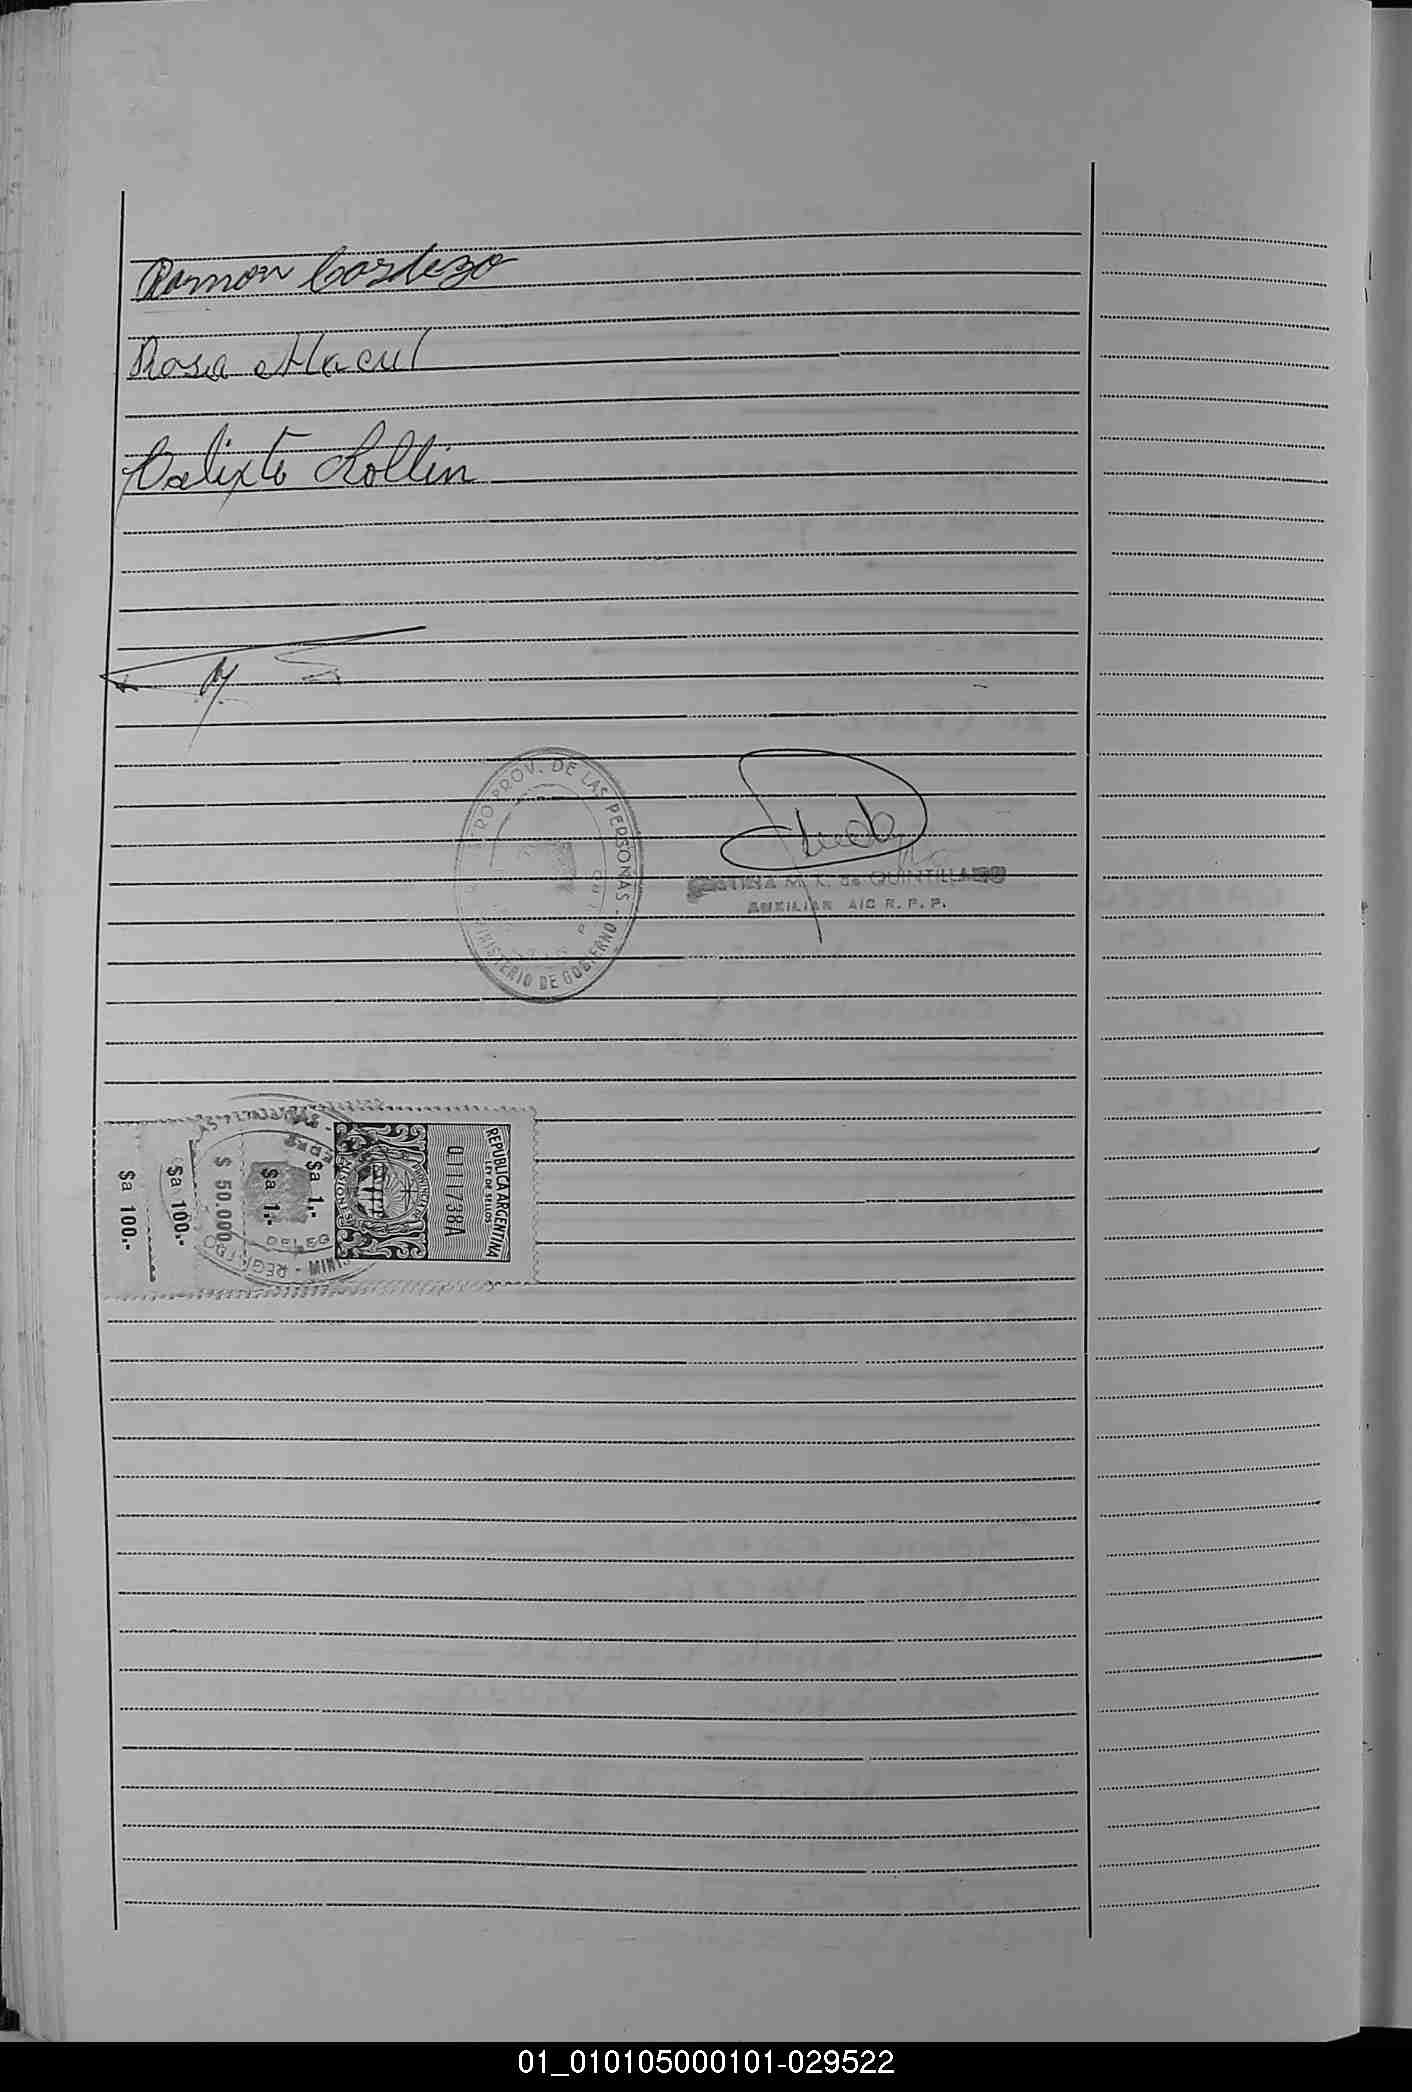 Ramon Cardozo
Rosa Macul
Calixto Lollin
PROV. DE LAS PERSONAS -
MINISTERIO DE GOBIERNO
M. K. de QUINTILLANO
AUXILIAR A/C R. P. P.
REPUBLICA ARGENTINA
LEY DE SELLOS
0111738A
PROVINCIA DE
MISIONES
$a 1,-
$a 1,-
$ 50.000
$a 100.-
$a 100.-
REGISTRO
DELEG
- MINI
01_010105000101-029522